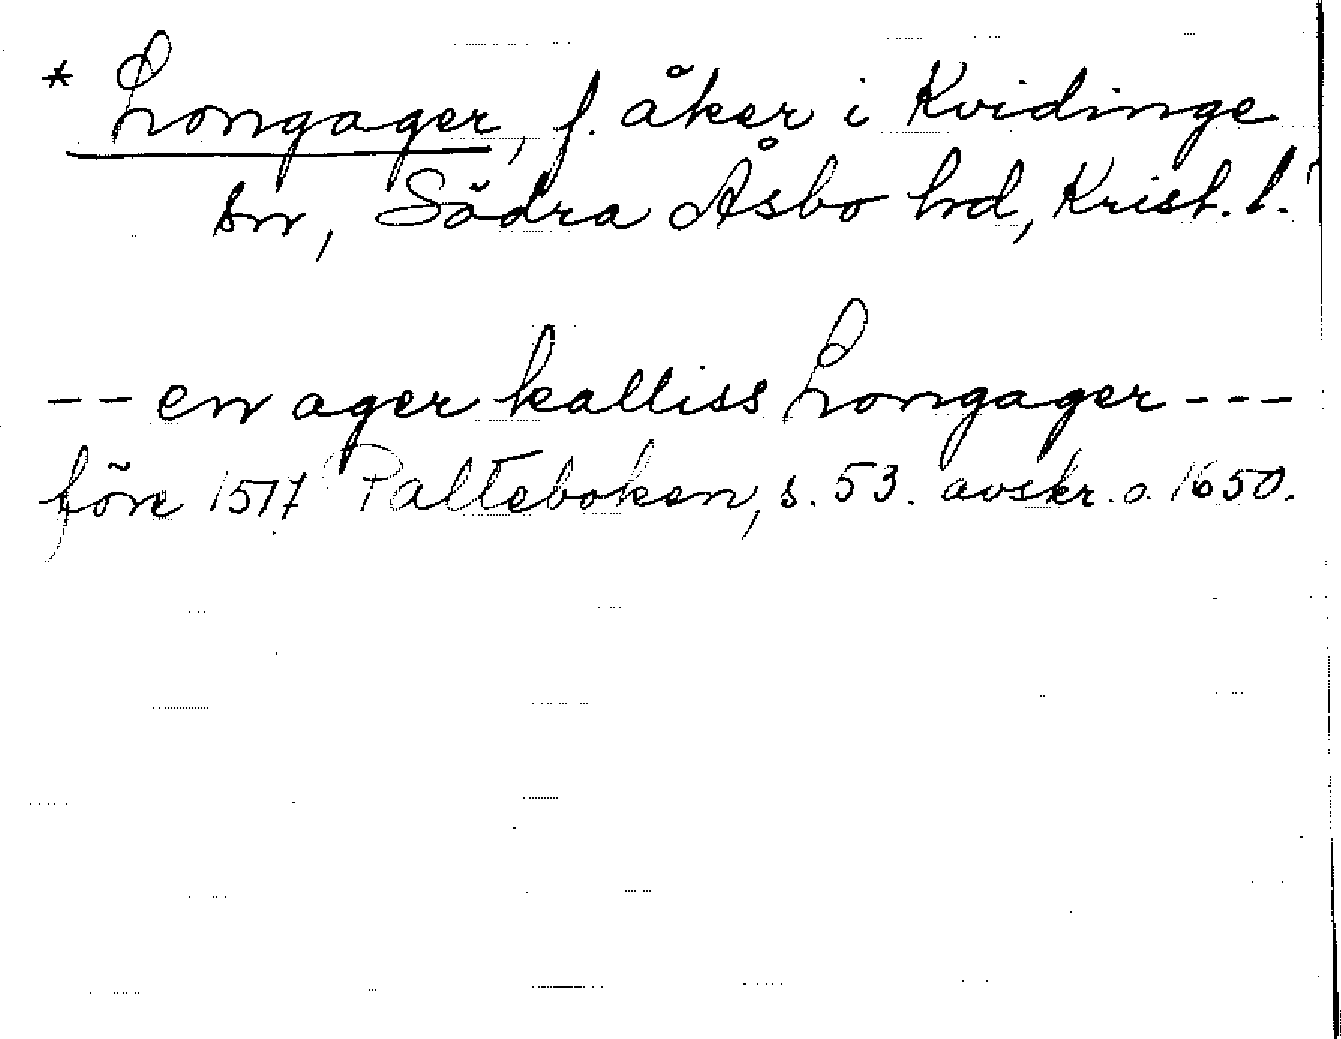 * Longager, f. åker i Kvidinge
sn, Södra Åsbo hd, Krist. l.
-- en ager kalliss Longager ---
före 1517 Palteboken, s. 53. avskr. o. 1650.